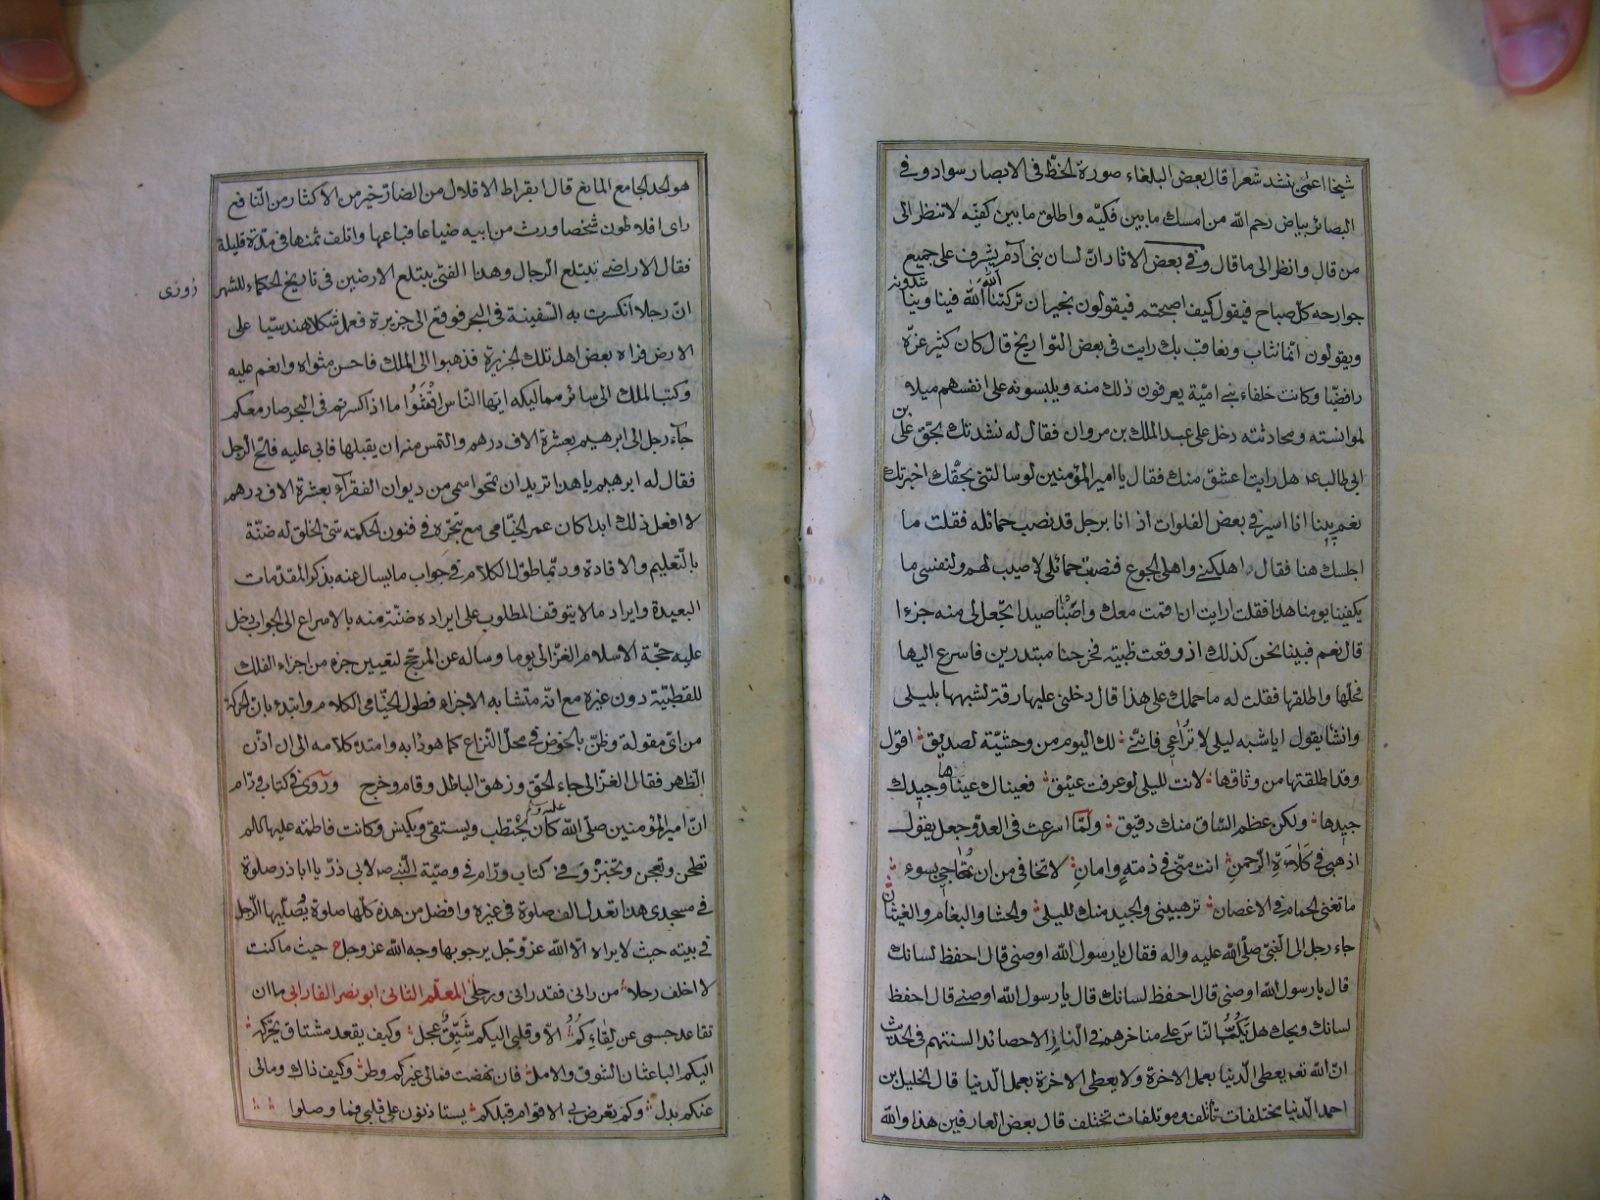 شيخا اعمى ينشد شعرا قال بعض البلغاء صورة الخظ فى الابصار سواد وفى
البصائر بياض رحم الله من امسك ما بين فكيه واطلق ما بين كفيه لا تنظر الى
من قال وانظر الى ما قال وفى بعض الاثار ان لسان بنى آدم يشرف على جميع
جوارحه كل صباح فيقول كيف اصبحتم فيقولون بخير ان تركتنا الله الله فينا ويناشدونه
ويقولون انما نثاب ونعاقب بك رايت فى بعض التواريخ قال كان كثير عزة
رافضيا وكانت خلفاء بنى امية يعرفون ذلك منه ويلبسونه على انفسهم ميلا
لموانسته ومحادثته دخل على عبد الملك بن مروان فقال له نشدتك بحق على بن
ابى طالب هل رايت اعشق منك فقال يا امير المؤمنين لو سالتنى بحقك اخبرتك
نعم بينا انا اسير فى بعض الفلوات اذ انا برجل قد نصب حبائله فقلت ما
اجلسك هنا فقال اهلكنى واهلى الجوع فنصبت حبائلى لاصيب لهم ولنفسى ما
يكفينا يومنا هذا فقلت ارايت ان اقمت معك واصبنا صيدا تجعل لى منه جزءا
قال نعم فبينا نحن كذلك اذ وقعت ظبية فخرجنا مبتدرين فاسرع اليها
فحلها واطلقها فقلت له ما حملك على هذا قال دخلنى عليها رقة لشبهها بليلى
وانشا يقول ايا شبه ليلى لا تراعى فاننى لك اليوم من وحشية لصديق اقول
وقد اطلقتها من وثاقها لانت لليلى لو عرفت عتيق فعيناك عيناها وجيدك
جيدها ولكن عظم الساق منك دقيق ولما اسرعت فى العدو وجعل يقول
اذهبى فى كلاءة الرحمن انت منى فى ذمة وامان لا تخافى من ان تهاجى بسوء
ما تغنى الحمام فى الاغصان ترهبينى والجيد منك لليلى والحشا والبغام والعينان
جاء رجل الى النبى صلى الله عليه واله فقال يا رسول الله اوصنى قال احفظ لسانك
قال يا رسول الله اوصنى قال احفظ لسانك قال يا رسول الله اوصنى قال احفظ
لسانك ويحك هل يكب الناس على مناخرهم فى النار الا حصائد السنتهم فى الحديث
ان الله تعم يعطى الدنيا بعمل الاخرة ولا يعطى الاخرة بعمل الدنيا قال الخليل بن
احمد الدنيا مختلفات تاتلف وموتلفات تختلف قال بعض العارفين هذا والله
هو الحد الجامع المانع قال بقراط الاقلال من الضار خير من الاكثار من النافع
راى افلاطون شخصا ورث من ابيه ضياعا فباعها واتلف ثمنها فى مدة قليلة
فقال الاراضى تبتلع الرجال وهذا الفتى يبتلع الارضين فى تاريخ الحكماء للشهر
زورى
ان رجلا انكسرت به السفينة فى البحر فوقع الى جزيرة فعمل شكلا هندسيا على
الارض فراه بعض اهل تلك الجزيرة فذهبوا الى الملك فاحسن مثواه وانعم عليه
وكتب الملك الى سائر مماليكه ايها الناس اقتنوا ما اذا كسرتم فى البحر صار معكم
جاء رجل الى ابرهيم بعشرة الاف درهم والتمس منه ان يقبلها فابى عليه فالح الرجل
فقال له ابرهيم يا هذا تريد ان تمحو اسمى من ديوان الفقراء بعشرة الاف درهم
لا افعل ذلك ابدا كان عمر الخيامى مع تبحره فى فنون الحكمة سئ الخلق له ضنة
بالتعليم والافادة وربما طول الكلام فى جواب ما يسال عنه بذكر المقدمات
البعيدة وايراد ما لا يتوقف المطلوب على ايراده ضنة منه بالاسراع الى الجواب دخل
عليه حجة الاسلام الغزالى يوما وساله عن المرجح لتعيين جزء من اجزاء الفلك
للقطبية دون غيره مع انه متشابه الاجزاء فطول الخيامى الكلام وابتدء بان الحركة
من اى مقولة وظن بالخوض فى محل النزاع كما هو دابه وامتد كلامه الى ان اذن
الظهر فقال الغزالى جاء الحق وزهق الباطل وقام وخرج وروى فى كتاب ورام
ان امير المؤمنين صلى الله عليه كان يحتطب ويستقى ويكنس وكانت فاطمة عليها السلم
تطحن وتعجن وتخبز وفى كتاب ورام فى وصية النبى ص لابى ذر يا اباذر صلوة
فى مسجدى هذا تعدل الف صلوة فى غيره وافضل من هذه كلها صلوة يصليها الرجل
فى بيته حيث لا يراه الا الله عز وجل يرجو بها وجه الله عز وجل حيث ما كنت
لا اخلف رحلا من رانى فقد رانى ورحلى المعلم الثانى ابو نصر الفارابى ما ان
تقاعد جسمى عن لقاءكم الا وقلبى اليكم شيق عجل وكيف يقعد مشتاق يحركه
اليكم الباعثان الشوق والامل فان نهضت فمالى غيركم وطر وكيف ذاك ومالى
عنكم بدل وكم تعرض بى الاقوام قبلكم يستاذنون على قلبى فما وصلوا